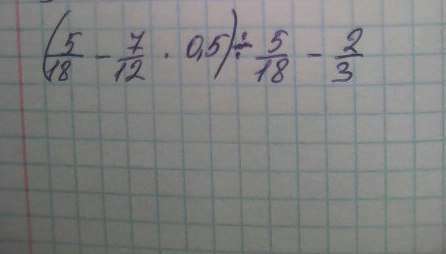 (5/18 - 7/12 · 0,5) ÷ 5/18 - 2/3